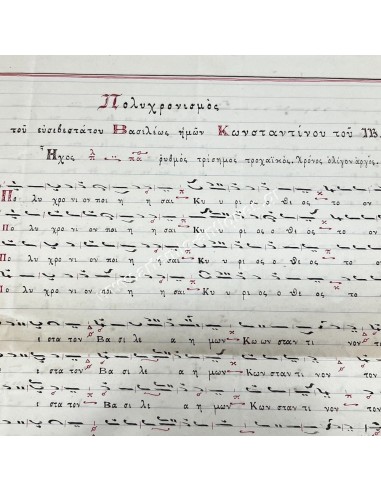 Πολυχρονισμὸς
τοῦ εὐσεβεστάτου Βασιλέως ἡμῶν Κωνσταντίνου τοῦ ΙΒ.
Ἦχος πα ῥυθμος τρίσημος τροχαϊκός. Χρόνος ὀλίγον ἀργός.
Πο λυ χρο νι ον ποι η η σαι Κυ υ ρι ο ο ς ο Θε ος το ον
Πο λυ χρο νι ον ποι η η σαι Κυ υ ρι ος ο θε ος το
Πο λυ χρο νι ον ποι η η σαι Κυ υ ρι ος ο θε ος το
Πο λυ χρο νι ον ποι η η σαι Κυ υ ρι ος ο θε ος το
ε στα τον Βα σι λε α η μων Κω ων σταν τι νον τον
ε στα τον Βα σι λε α η μων Κων σταν τι νον το
ε στα τον Βα σι λε α η μων Κων σταν τι νον το